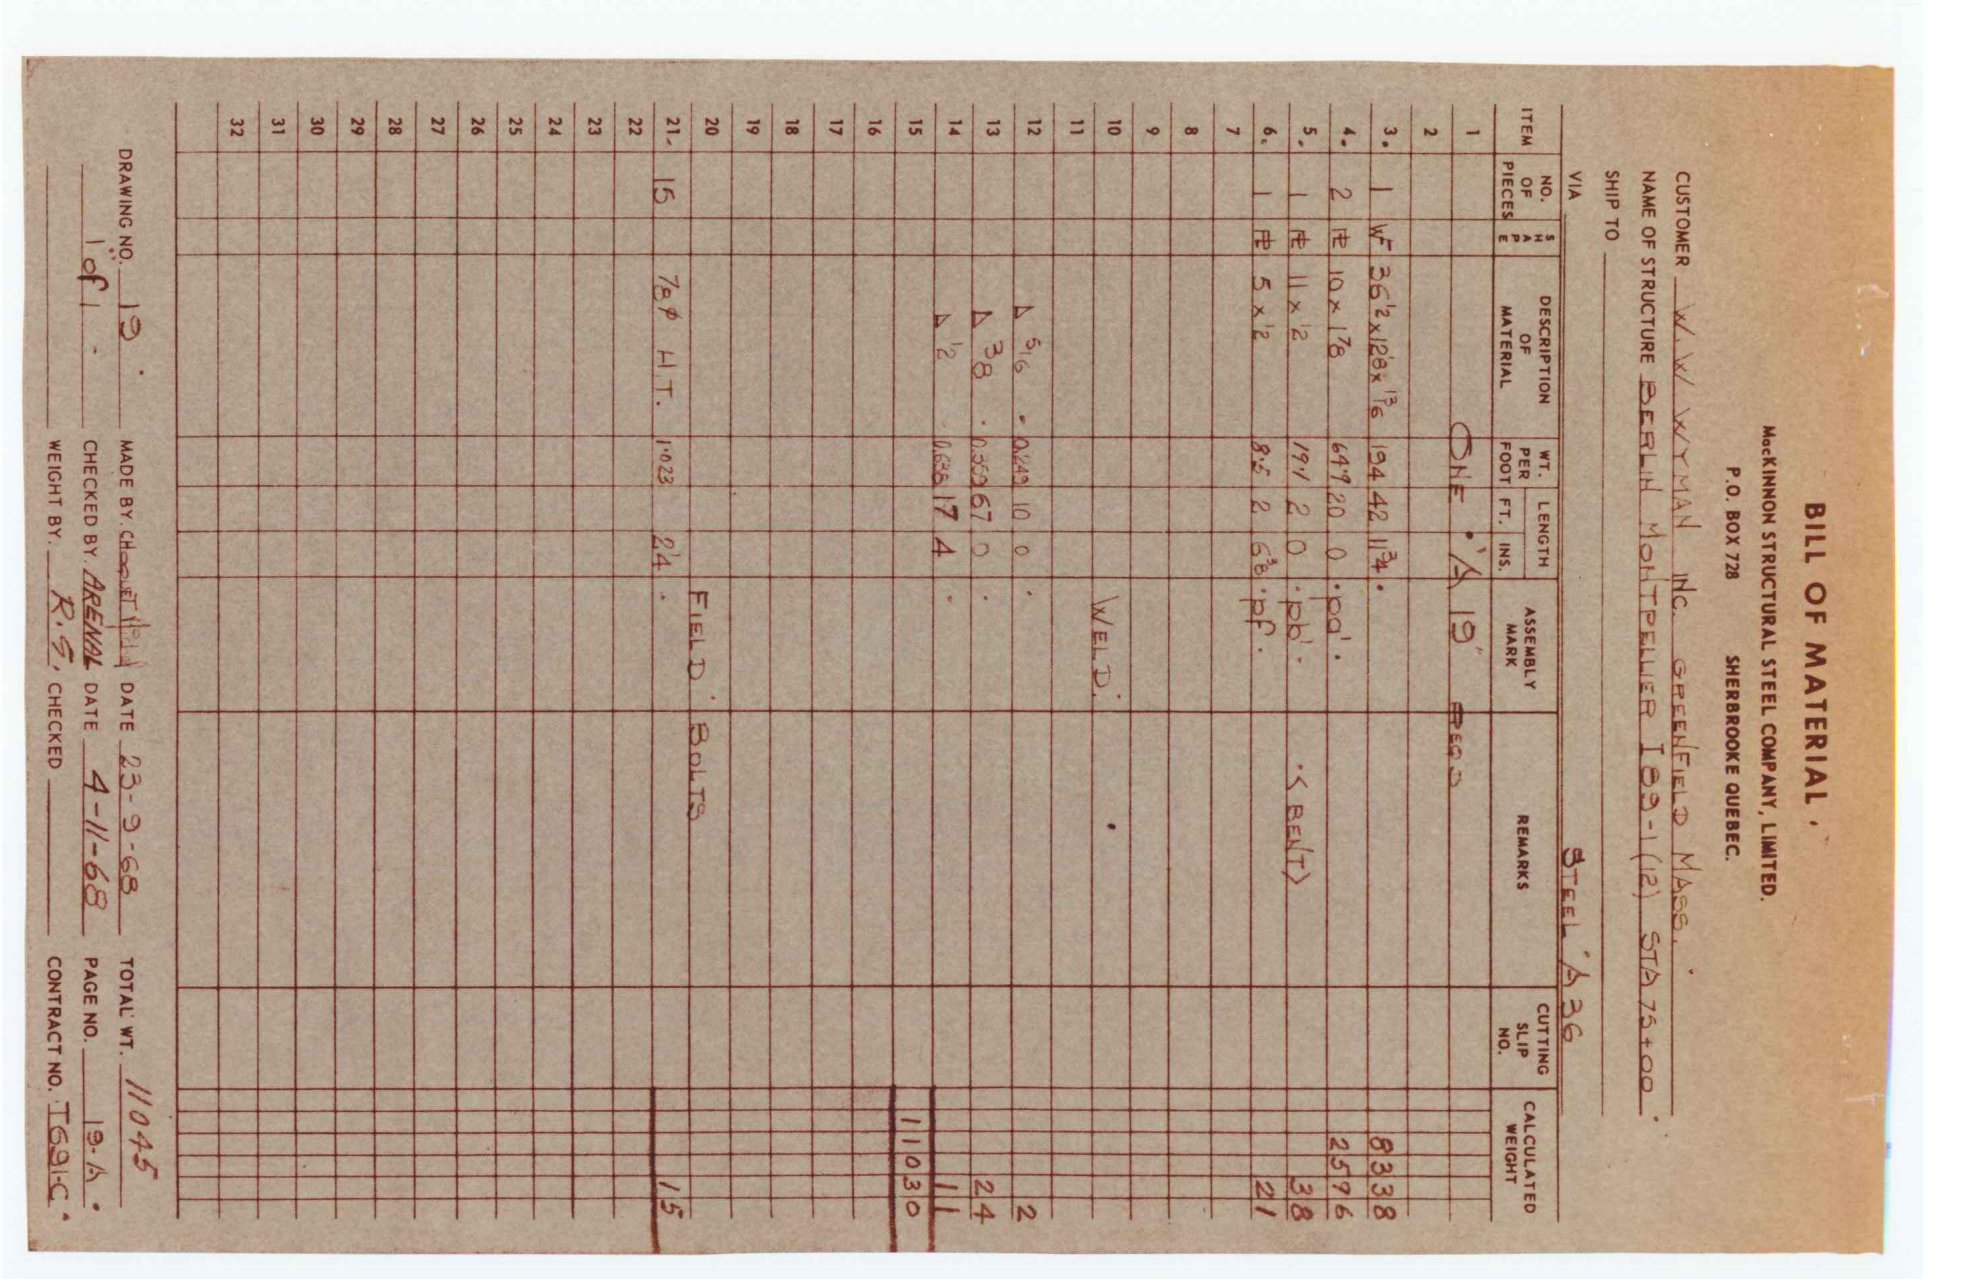 BILL OF MATERIAL
MacKINNON STRUCTURAL STEEL COMPANY, LIMITED.
P.O. BOX 728 SHERBROOKE QUEBEC.
CUSTOMER W. W WYMAN INC. GREENFIELD MASS.
NAME OF STRUCTURE BERLIN MONTPELLIER I 89-1(12) STA 75+00
SHIP TO
VIA STEEL A 36
ITEM NO. OF PIECES SHAPE DESCRIPTION OF MATERIAL WT. PER FOOT LENGTH FT. INS. ASSEMBLY MARK REMARKS CUTTING SLIP NO. CALCULATED WEIGHT
1 ONE "A 19" REQD
2
3. 1 W 36 1/2 x 12 1/8 x 13/16 194 42 11 3/4 8338
4. 2 PL 10 x 1 7/8 64.9 20 0 pa 2596
5. 1 PL 11 x 1/2 19.1 2 0 pb < BENT > 38
6. 1 PL 5 x 1/2 8.5 2 6 3/8 pf 21
7
8
9
10 WELD
11
12 5/16 0.249 10 0 2
13 3/8 0.359 67 0 24
14 1/2 0.638 17 4 11
15 11030
16
17
18
19
20 FIELD BOLTS
21 15 7/8 φ H.T. 1.023 2 1/4 15
22
23
24
25
26
27
28
29
30
31
32
DRAWING NO. 19 MADE BY. DATE 23-9-68 TOTAL WT. 11045
1 of 1 CHECKED BY. ARENAL DATE 4-11-68 PAGE NO. 19-A
WEIGHT BY. R.S. CHECKED CONTRACT NO. T691-C